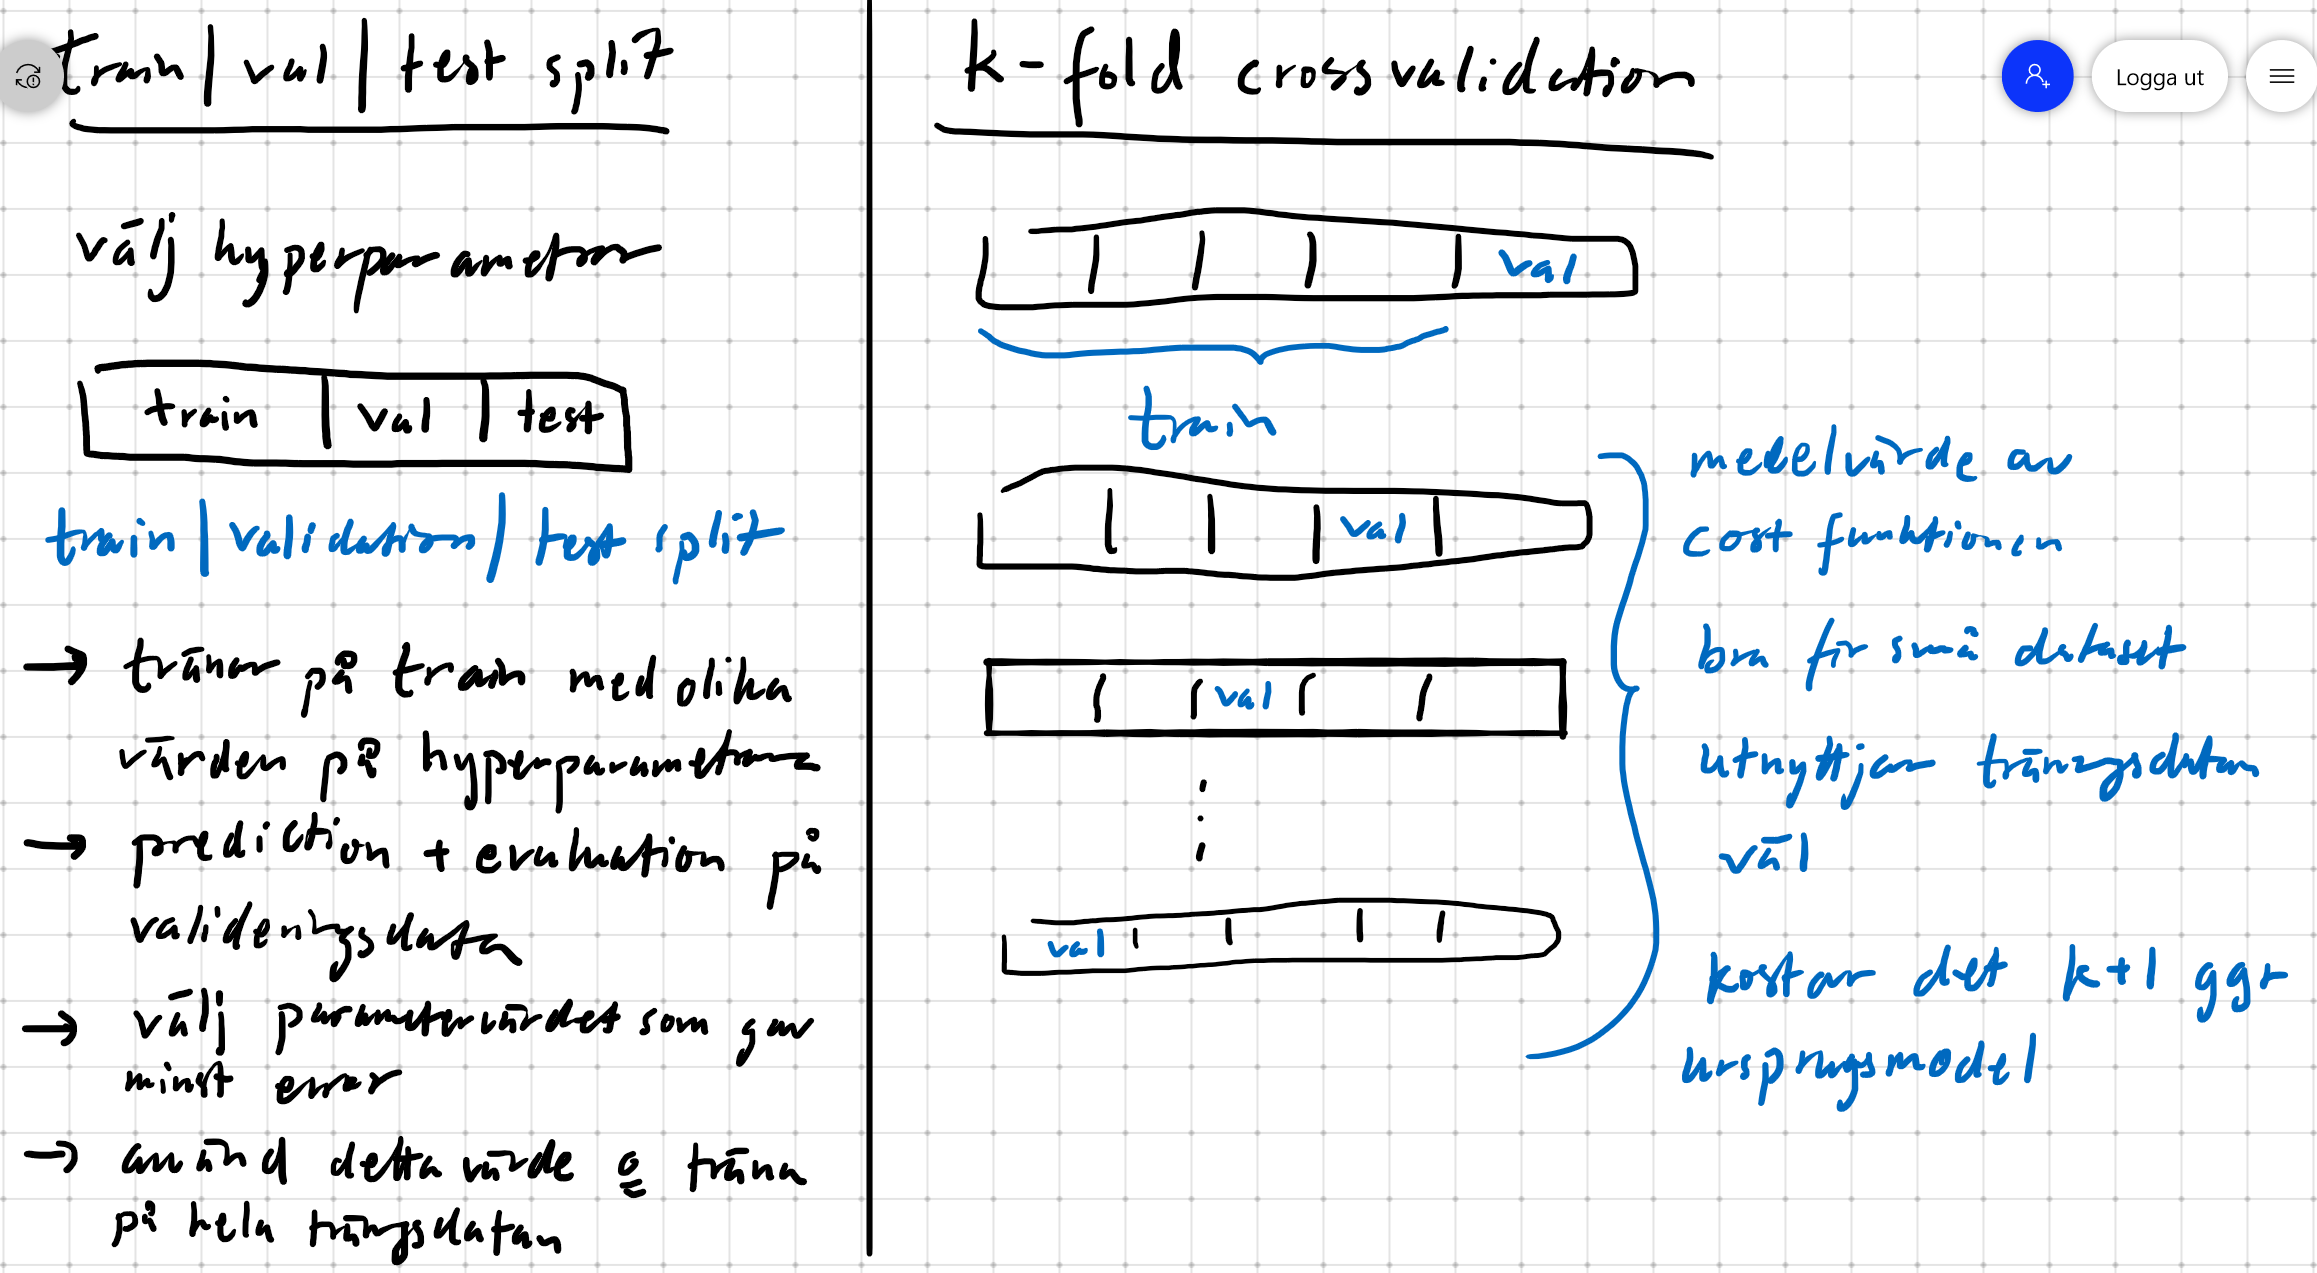 train | val | test split
välj hyperparametrar
train | val | test
train | validation | test split
→ tränar på train med olika
värden på hyperparametrarna
→ prediction + evaluation på
valideringsdata
→ välj parametervärdet som gav
minst error
→ använd detta värde o träna
på hela träningsdatan
k-fold crossvalidation
val
train
val
val
val
medelvärde av
cost funktionen
bra för små dataset
utnyttjar träningsdatan
väl
kostar det k+1 ggr
ursprungsmodel
Logga ut